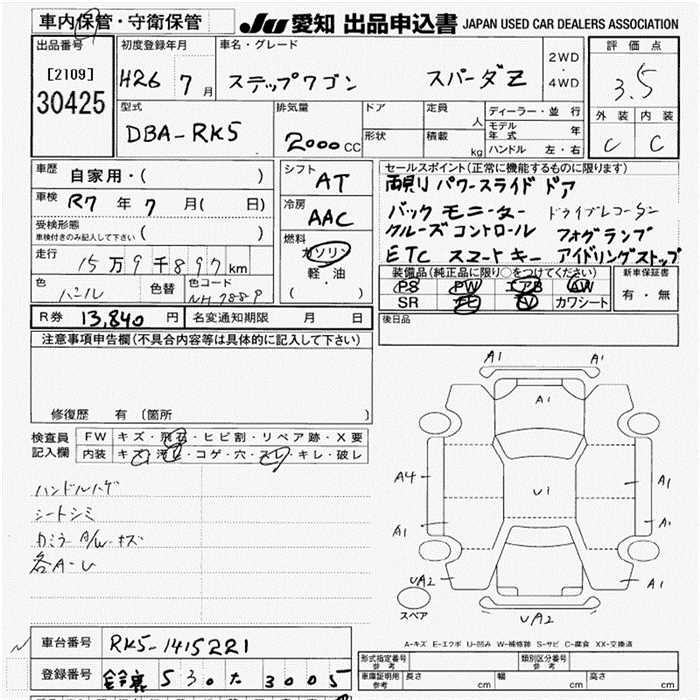 車内保管・守衛保管
JU 愛知 出品申込書 JAPAN USED CAR DEALERS ASSOCIATION
出品番号
[2109]
30425
初度登録年月
H26 7月
車名・グレード
ステップワゴン スパーダZ
2WD
・
4WD
評価点
3.5
外装 内装
C C
型式
DBA-RK5
排気量
2000 CC
ドア
形状
定員 人
積載 kg
ディーラー・並行
モデル年式 年
ハンドル 左・右
車歴
自家用・( )
車検
R7年7月( 日)
受検形態
車検付きのみ記入して下さい ( )
走行
15万9千897km
色
パール
色替
色コード
NH788P
シフト
AT
冷房
AAC
燃料
ガソリン
軽・油
( )
セールスポイント(正常に機能するものに限ります)
両則リ パワースライド ドア
バック モニーター ドライブレコーダン
クルーズコントロール フォグランプ
ETC スマートキー アイドリングストップ
装備品(純正品に限り○をつけてください)
PS PW エアB AW
SR TV カワシート
新車保証書
有・無
R券 13,840円 名変通知期限 月 日
後日品
注意事項申告欄(不具合内容等は具体的に記入して下さい)
修復歴 有〔箇所 〕
検査員
記入欄
FW キズ・飛石・ヒビ割・リペア跡・X要
内装 キズ・汚レ・コゲ・穴・スレ・キレ・破レ
ハンドルハゲ
シートシミ
カミラー A/W キズ
各A-U
A1 A1
A1
A4 U1 A1
A1 A1
UA2 A1
UA2
スペア
A-キズ E-エクボ U-凹み W-補修跡 S-サビ C-腐食 XX-交換済
車台番号 RK5-1415221
登録番号 鈴鹿 530 た 3005
形式指定番号
参考
類別区分番号
参考
車庫証明用
参考
長さ cm 幅 cm 高さ cm